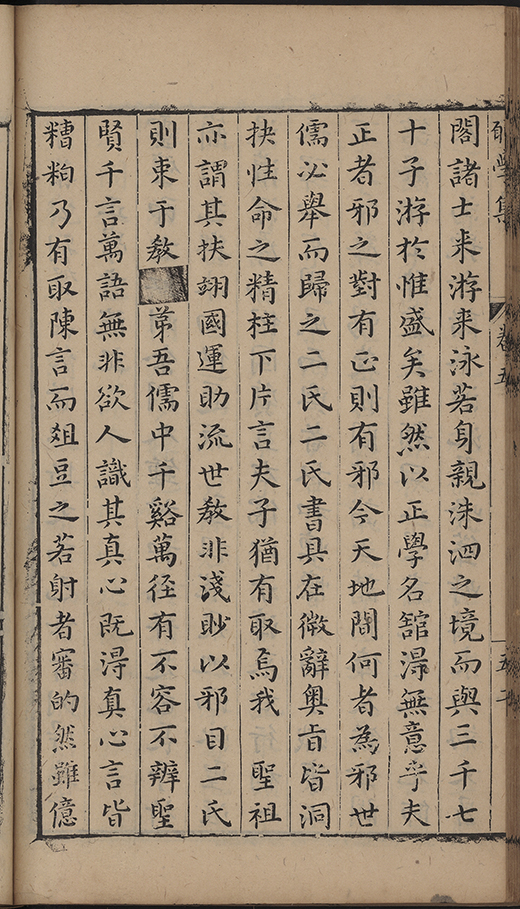 學集 卷五 五十
閣諸士来游来泳若身親洙泗之境而與三千七
十子游於惟盛矣雖然以正學名舘淂無意乎夫
正者邪之對有正則有邪今天地間何者為邪世
儒必舉而歸之二氏二氏書具在微辭奥旨皆洞
抉性命之精柱下片言夫子猶有取焉我 聖祖
亦謂其扶翊國運助流世教非淺眇以邪目二氏
則束于教 苐吾儒中千谿萬径有不容不辨聖
賢千言萬語無非欲人識其真心既淂真心言皆
糟粕乃有取陳言而爼豆之若射者審的然雖億